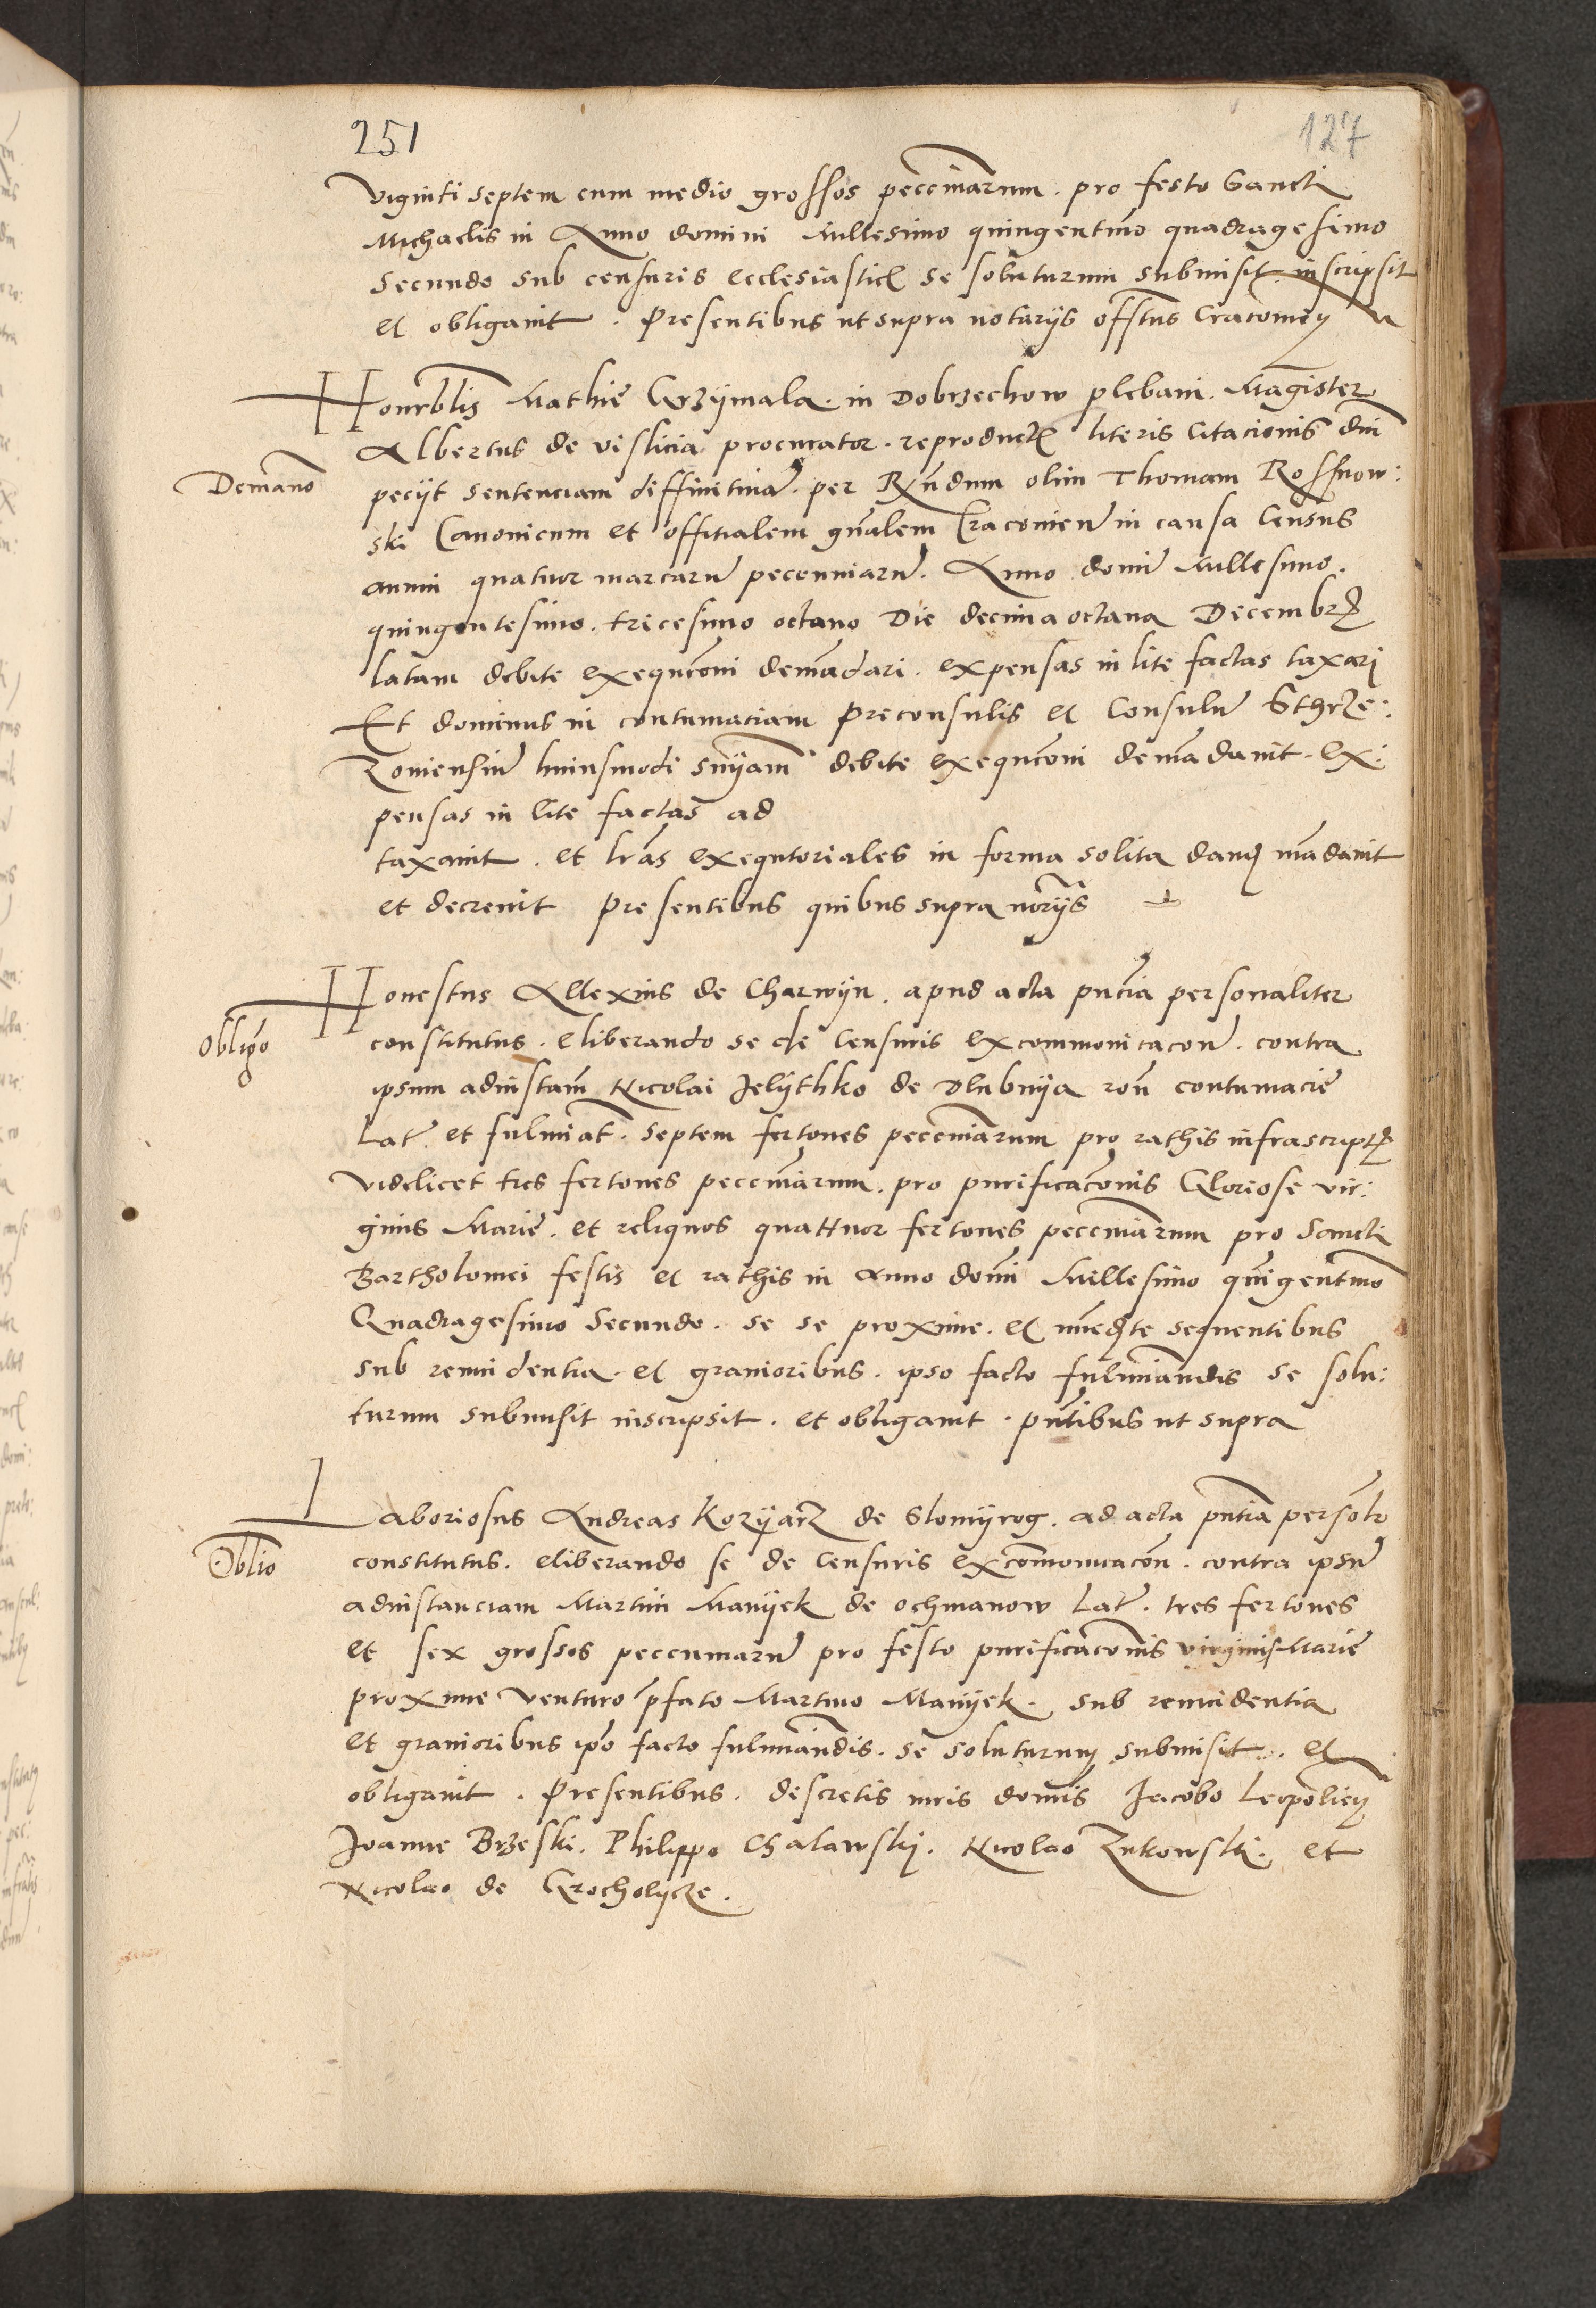 251
127
viginti septem cum medio grossos pecciniarum. pro festo Sancti
Michaelis in Anno domini Millesimo quingentmo quadragesimo
Secundo sub censuris ecclesiastic se soluturum submisit inscripsit
et obligauit. Presentibus ut supra notarijs offtus Cracouien
Honrblis Mathie Grzijmala. in Dobrzechow plebani. Magister
Albertus de vislicia procurator. reproductis literis Citacionis dni
Demano
pecijt sentenciam diffinitiua. per Rndum olim Thomam Rossnow:
ski Canonicum et officialem gnalem Cracouien in causa Census
annui quatuor marcarum pecunniarum. Anno domini Millesimo.
quingentesimo. tricesimo octauo Die decima octaua Decembris
latam debite exequcioni demadari. expensas in lite factas taxari
Et dominus in contumatiam Preconsulis et Consulum Sthrze:
zouiensium huiusmodi snyam debite exequcioni demadauit. ex:
pensas in lite factas ad
taxauit. et lras exequtoriales in forma solita dandas madauit
et decreuit Presentibus quibus supra norijs
Honestus Allexius de Charwijn. apud acta pncia personaliter
Obligo
constitutus. eliberando se de Censuris excommonicacon. contra
ipsum adinstam Nicolai Jelijthko de Dlubnija ron contumacie
Lat et fulminat. septem fertones pecciniarum pro rathis infrascriptis
videlicet tres fertones pecciniarum. pro purificacionis Gloriose vir:
ginis Marie. et reliquos quattuor fertones pecciniarum pro Sancti
Bartholomei festis et rathis in anno domi Millesimo quigentmo
Quadragesimo Secundo. se se proxime. et imediate sequentibus
sub remidentia. et grauioribus. ipso facto fulminandis se solu:
turum submisit inscripsit. et obligauit. pntibus ut supra
Laboriosus Andreas Kozijarz de Slomijrog. ad acta pntia persolr
Oblio
constitutus. eliberando se de Censuris excomonicacon. contra ipsum
adinstanciam Martini Manijek de Ochmanow Lat. tres fertones
et sex grossos pecuniarum pro festo purificacionis virginis Marie
proxime venturo pfato Martino Manijek. sub reincidentia
et grauioribus ipso facto fulminandis. se soluturum submisit. et
obligauit. Presentibus. discretis viris domis Jacobo Leopolien
Joanne Brzeski. Philippo Chalawskij. Nicolao Zukowski. et
Nicolao de Grocholijcze.